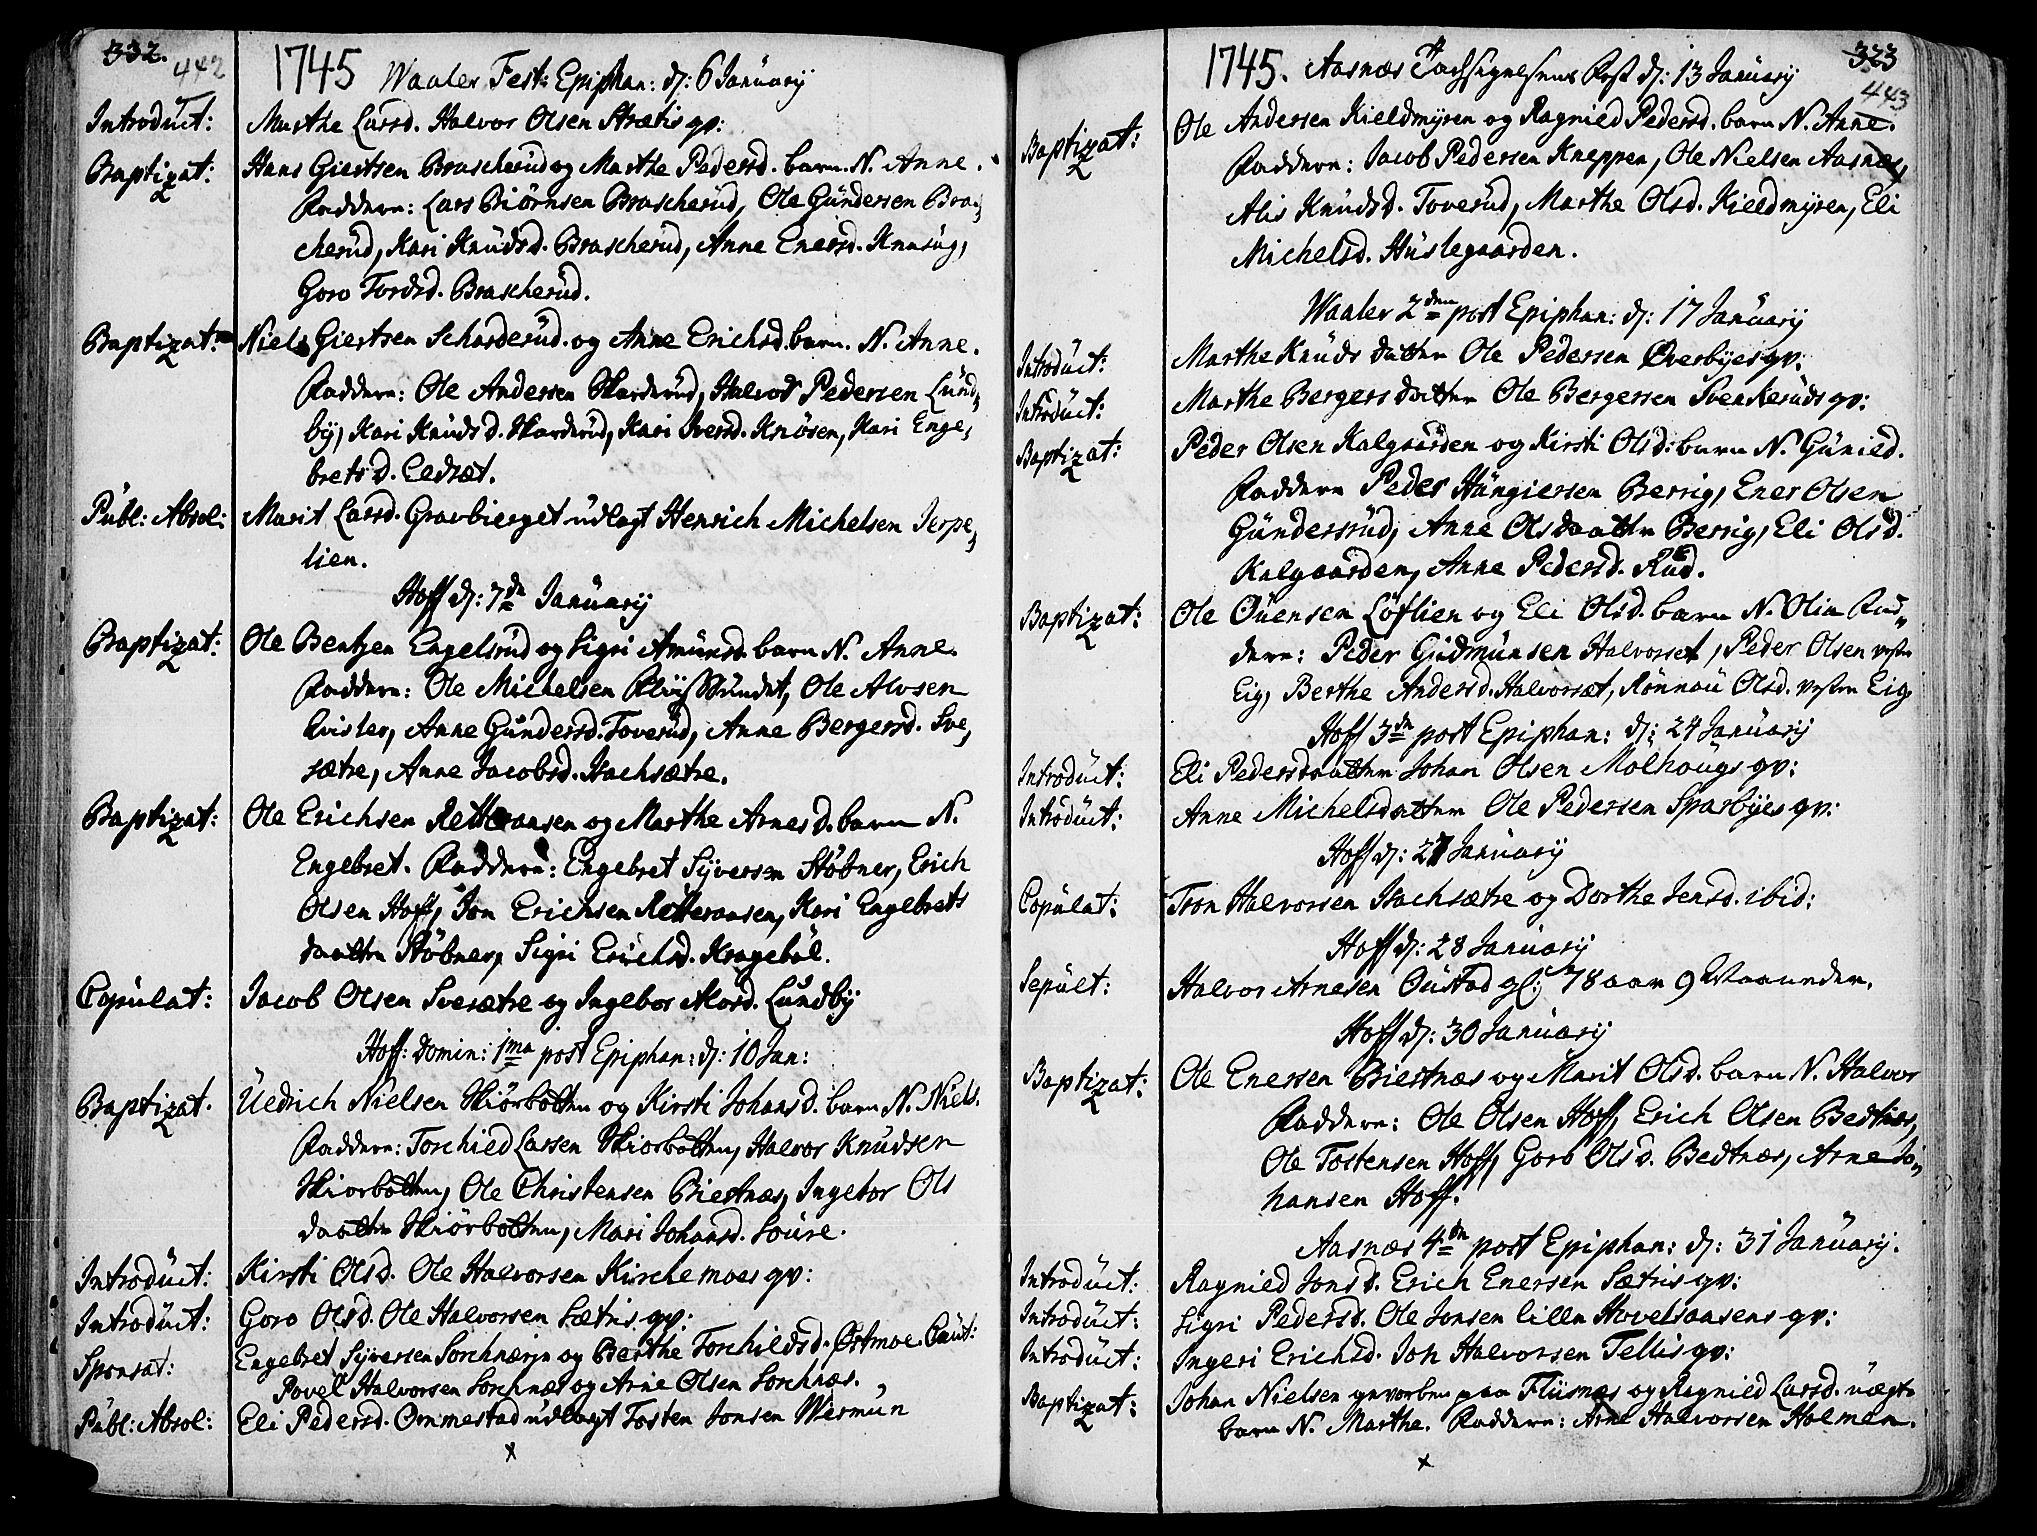 332.
442
1745 Waaler Fest: Epiphan: d: 6 Januarij
Introduct: Marthe Larsd. Halvor Olsen Strætis qv:
Baptizat: Hans Giertsen Brascherud og Marthe Pedersd. barn. N. Anne.
Faddere: Lars Biörnsen Brascherud, Ole Gundersen Bra,
cherud, Kari Knudsd. Brascherud, Anne Enersd.
Goro Tordsd. Brascherud.
Baptizat: Niels Giertsen Scharderud. og Anne Erichsd. barn. N. Anne.
Faddere: Ole Andersen Skarderud, Halvor Pedersen Lund,
by, Kari Knudsd. Skarderud, Kari Iversd. Knösen, Kari Enge,
bretsd. Eedsæt.
Publ: Absol: Marit Larsd. Gravbierget udlagt Henrich Michelsen Ierpe,
lien.
Hoff d: 7de Januarij
Baptizat: Ole Bentzen Engelsrud og Sigri Amundsd. barn N. Anne.
Faddere: Ole Michelsen Ole Alvsen
Kvisler, Anne Gundersd. Toverud, Anne Bergersd. Sve,
sætre, Anne Jacobsd. Kachsætre.
Baptizat: Ole Erichsen Retteraasen og Marthe Arnesd. barn N.
Engebret. Faddere: Engebret Syversen Stöbner, Erich
Olsen Hoff, Jon Erichsen Retteraasen, Kari Engebrets
daatter Stöbner, Sigri Erichsd. Krageböl.
Copulat: Jacob Olsen Svesætre og Ingebor Alosd. Lundby
Hoff: Domin: 1ma post Epiphan: d: 10 Jan:
Baptizat. Uedrich Nielsen Skiörbotten og Kirsti Johansd. barn N. Niels.
Faddere: Torchied Larsen Skiorbotten, Halvor Knudsen
Skiorbotten, Ole Christensen Biertnæs, Ingebor Ols
daatter Skiörbotten, Mari Johansd. Soure.
Introduct: Kirsti Olsd. Ole Halvorsen Kirchemoes qv:
Introduct: Goro Olsd. Ole Halvorsen Sætris qv:
Sponsat: Engebret Syversen Sorchnæsje og Berthe Torchildsd. Östmoe. Caut:
Povel Halvorsen Sorchnæs og Arne Olsen Sorchnæs.
Publ: Absol: Eli Pedersd. Ommestad udlagt Tosten Jonsen Wermun
x
323
443
1745. Aasnæs Tachsigelsens Fest d: 13 Januarij
Baptizat: Ole Andersen Kieldmyren og Ragnied Pedersd. barn N. Anne.
Faddere: Jacob Pedersen Kneppen, Ole Nielsen Aasnæs,
Alis Knudsd. Toverud, Marthe Olsd. Kieldmyren, Eli
Michelsd. Huslegaarden.
Waaler 2den post Epiphan: d: 17 Januarij
Introduct: Marthe Knuds datter Ole Pedersen Överbyes qv:
Introduct: Marthe Bergers datter Ole Bergersen Svenkeruds qv:
Baptizat: Peder Olsen Kalgaarden og Kirsti Olsd: barn N. Gunied.
Faddere Peder Hangiersen Berrig, Ener Olsen
Gundersrud, Anne Olsdaatter Berrig, Eli Olsd.
Kalgaarden, Anne Pedersd. Rud.
Baptizat: Ole Ouensen Löflien og Eli Olsd. barn N. Olia Fad,
dere: Peder Gudmunsen Halvorset, Peder Olsen vester
Eig, Berthe Andersd. Halvorsæt, Rönnau Olsd. vester Eig,
Hoff 3de post Epiphan: d: 24 Januarij
Introduct: Eli Pedersdaatter Johan Olsen Molhougs qv:
Introduct: Anne Michelsdatter Ole Pedersen Sparbyes qv:
Hoff d: 27 Januarij
Copulat: Tron Halvorsen Kachsætre og Dorthe Jensd. ibid:
Hoff d: 28 Januarij
Sepult: Halvor Arnesen Oustad gl: 78 aar 9 Maaneder.
Hoff d: 30 Januarij
Baptizat: Ole Enersen Biertnæs og Marit Olsd. barn N. Halvor
Faddere: Ole Olsen Hoff, Erich Olsen Bedtnæs,
Ole Tostensen Hoff, Goro Olsd. Bedtnæs, Arne Jo,
hansen Hoff.
Aasnæs 4de post Epiphan: d: 31 Januarij.
Introduct: Ragnied Jonsd. Erich Enersen Sætris qv:
Introduct: Sigri Pedersd. Ole Jonsen lille Hovelsaasens qv:
Introduct: Ingeri Erichsd. Jon Halvorsen Tellis qv:
Baptizat: Johan Nielsen gevorben paa Fliisnæs og Ragnied Larsd. uægte
barn N. Marthe. Faddere: Arne Halvorsen Holmen.
x